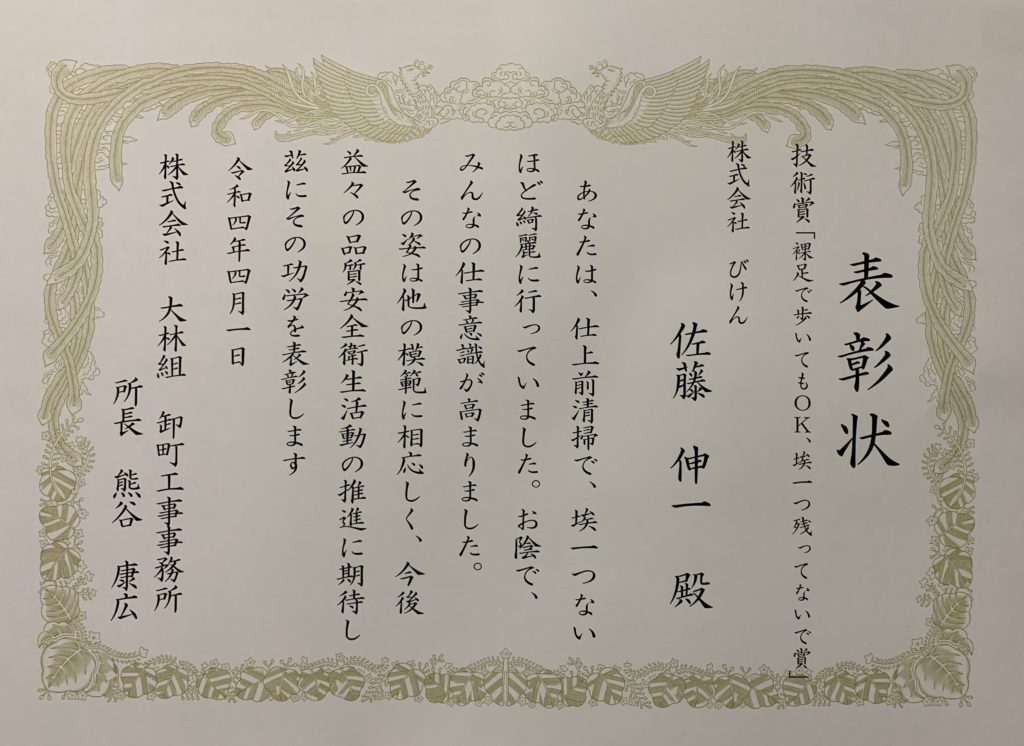 表彰状
技術賞「裸足で歩いてもOK、埃一つ残ってないで賞」
株式会社 びけん
佐藤 伸一 殿
あなたは、仕上前清掃で、埃一つない
ほど綺麗に行っていました。お陰で、
みんなの仕事意識が高まりました。
その姿は他の模範に相応しく、今後
益々の品質安全衛生活動の推進に期待し
茲にその功労を表彰します
令和四年四月一日
株式会社 大林組 卸町工事事務所
所長 熊谷 康広